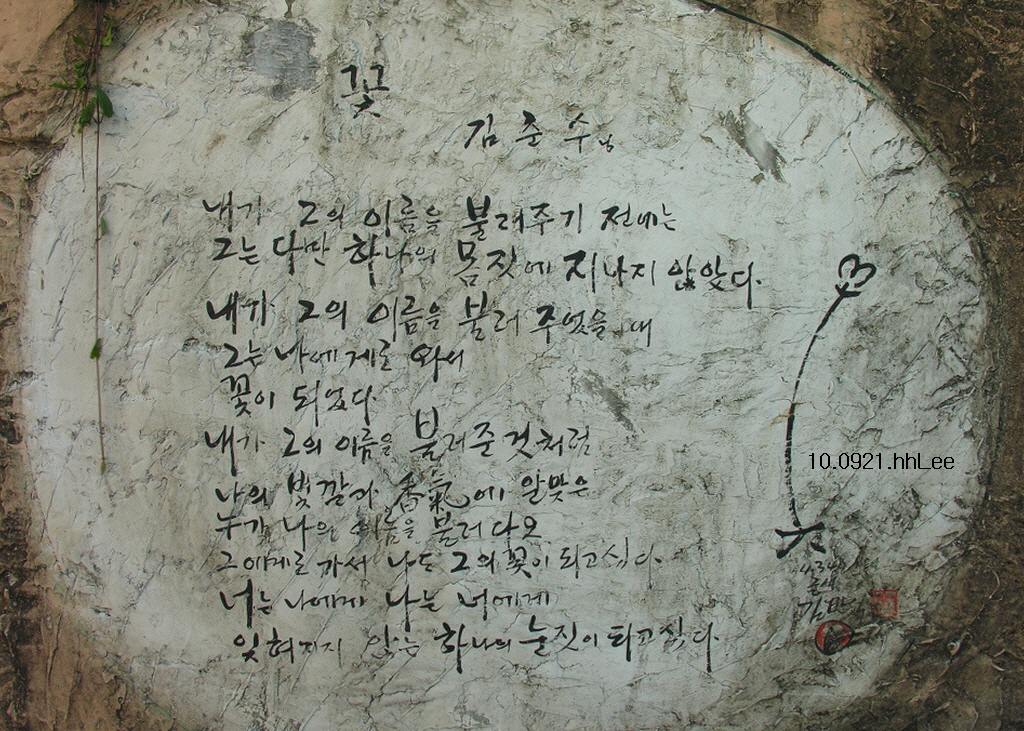 꽃
김춘수님
내가 그의 이름을 불러주기 전에는
그는 다만 하나의 몸짓에 지나지 않았다.
내가 그의 이름을 불러 주었을 때
그는 나에게로 와서
꽃이 되었다
내가 그의 이름을 불러준것처럼
나의 빛깔과 香氣에 알맞은
누가 나의 이름을 불러다오
그에게로 가서 나도 그의 꽃이 되고싶다.
너는 나에게 나는 너에게
잊혀지지 않는 하나의 눈짓이 되고싶다.
10.0921.hhLee